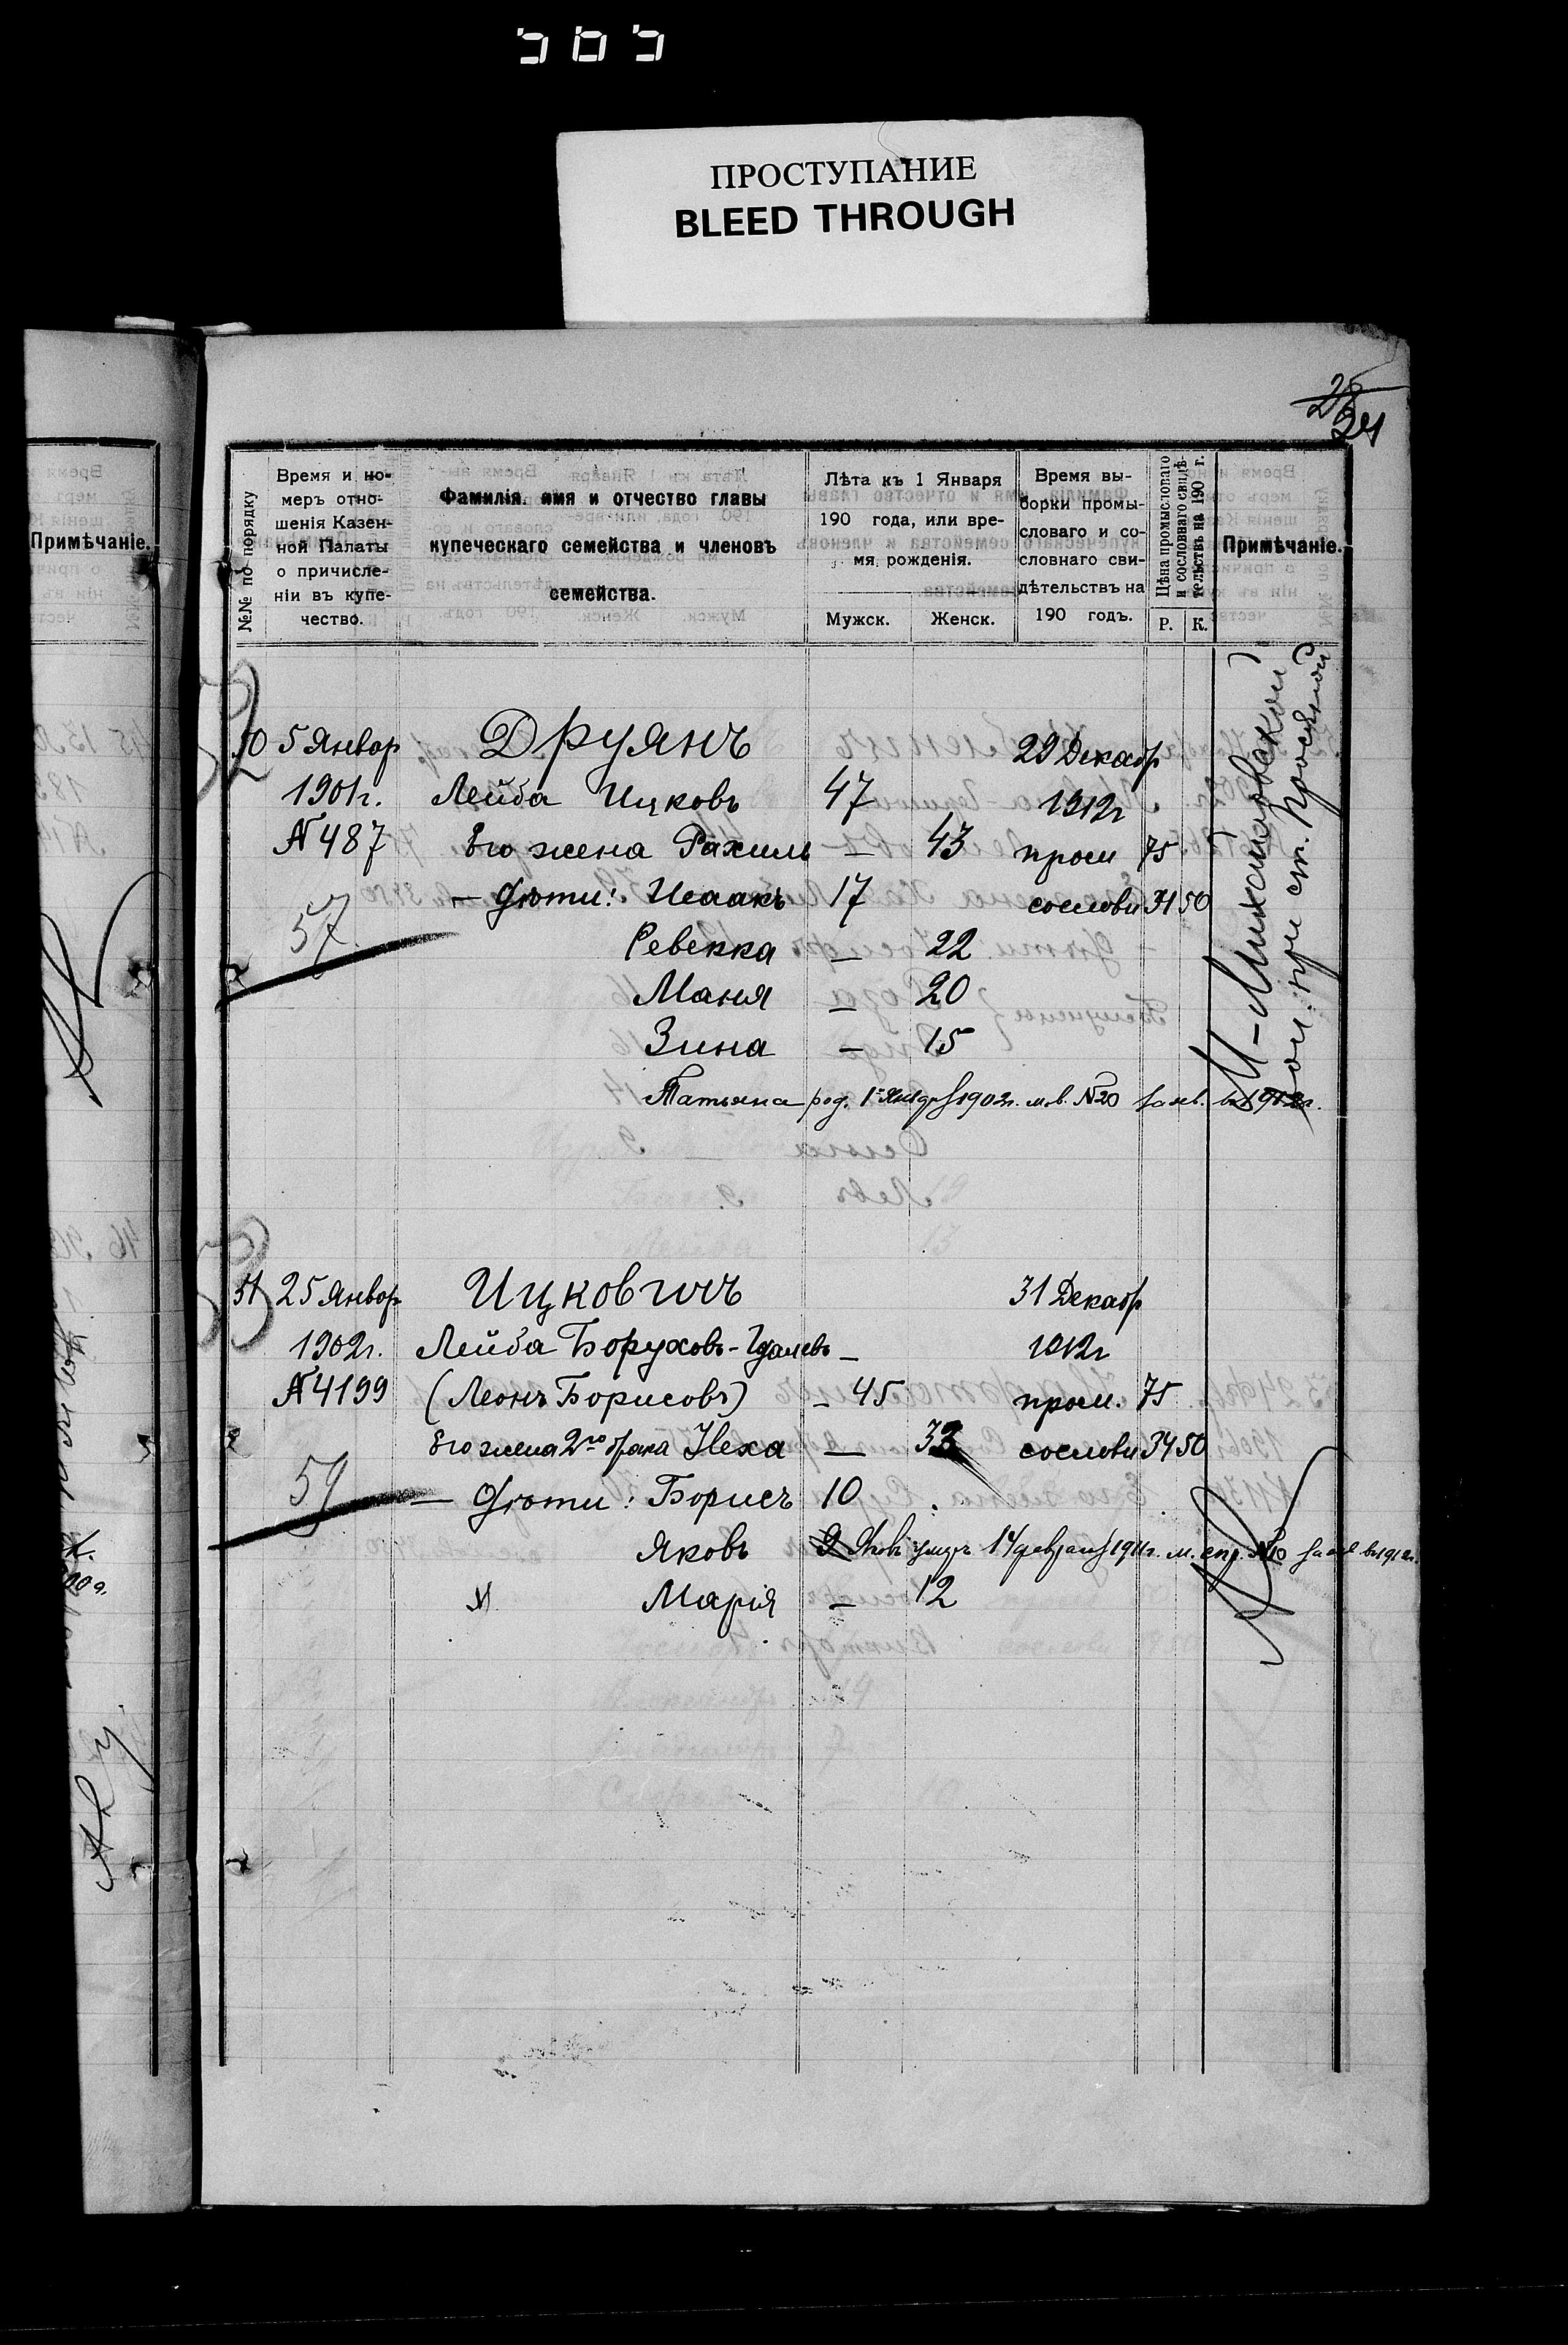 ПРОСТУПАНИЕ
BLEED THROUGH
28
24
Примѣчаніе.
№№ по порядку
Время и но-
меръ отно-
шенія Казен-
ной Палаты
о причисле-
ніи въ купе-
чество.
Фамилія, имя и отчество главы
купеческаго семейства и членовъ
семейства.
Лѣта къ 1 Января
190 года, или вре-
мя рожденія.
Мужск. Женск.
Время вы-
борки промы-
словаго и со-
словнаго сви-
дѣтельствъ на
190 годъ.
Цѣна промысловаго
и сословнаго свидѣ-
тельствъ на 190 г.
Р. К.
Примѣчаніе.
50 5 Январ Друянъ 29 Декабр
1901г. Лейба Ицковъ 47 1912г
№ 487 Его жена Рахиль — 43 пром 75
— Дѣти: Исаакъ 17 сословн 34 50
57
Ревекка — 22
Маня — 20
Зина — 15
Татьяна род. 1 1902г. м.в. №20 1912г.
М-Михайловской
при ст. Просяной
51 25 Январ Ицковичъ 31 Декабр
1902г. Лейба Боруховъ-Гдалевъ — 1912г
№ 4199 (Леонъ Борисовъ) — 45 пром. 75
Его жена 2го брака Неха — 33 сословн 34 50
59
— Дѣти: Борисъ 10
Яковъ 9 Яковъ умеръ 14 февраля 1911г. м. спр. №10 в 1912г.
Марія — 12